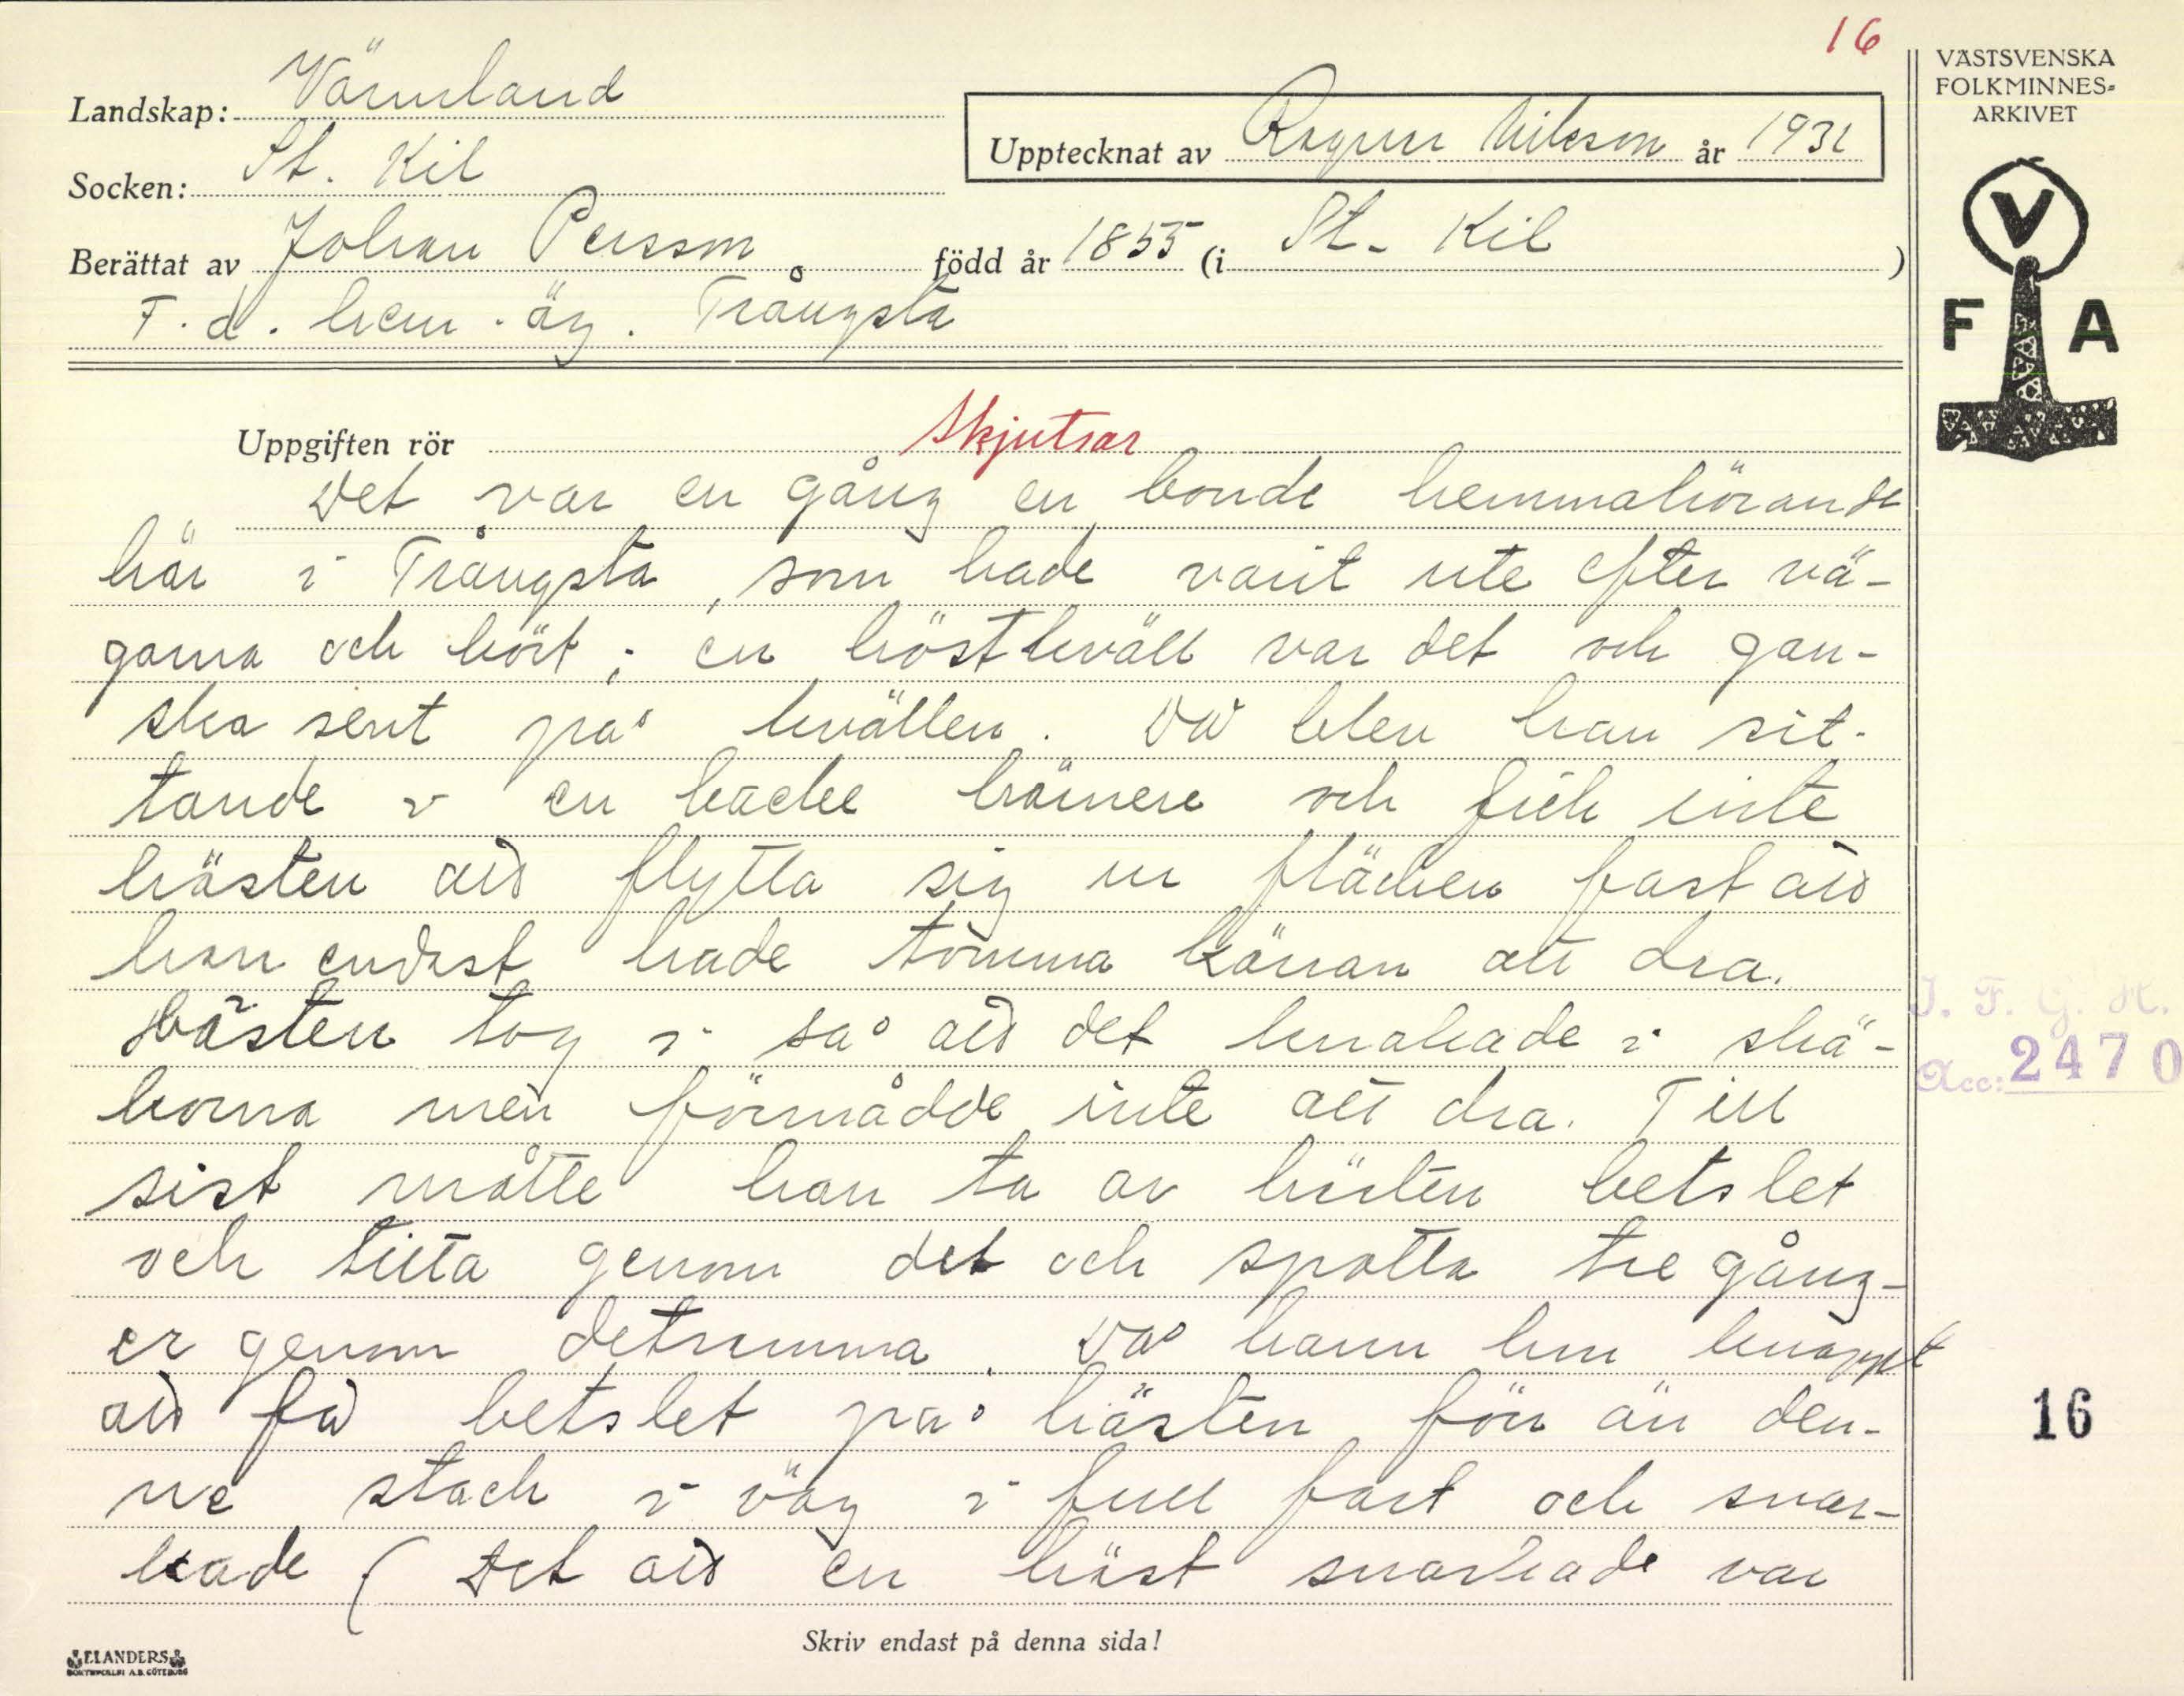 16
VÄSTSVENSKA
FOLKMINNES-
ARKIVET
Landskap: Värmland
Upptecknat av Ragnar Nilsson år 1931
Socken: St. Kil
Berättat av Johan Persson född år 1855 (i St. Kil)
F. d. hem. äg. Trångsta
V
F A
Uppgiften rör Skjutsar
Det var en gång en bonde hemmahörande
här i Trångsta, som hade varit ute efter vä-
garna och kört; en höstkväll var det och gan-
ska sent på kvällen. Då blev han sit-
tande i en backe härnere och fick inte
hästen att flytta sig ur fläcken fast att
han endast hade tomma kärran att dra.
Hästen tog i så att det knakade i skä-
korna men förmådde inte att dra. Till
sist måtte han ta av hästen betslet
och titta genom det och spotta tre gång-
er genom detsamma. Då hann han knappt
att få betslet på hästen förr än den-
ne stack i väg i full fart och snar-
kade (Det att en häst snarkade var
J. F. G. H.
Acc: 2470
16
Skriv endast på denna sida!
ELANDERS
BOKTRYCKERI A.B. GÖTEBORG